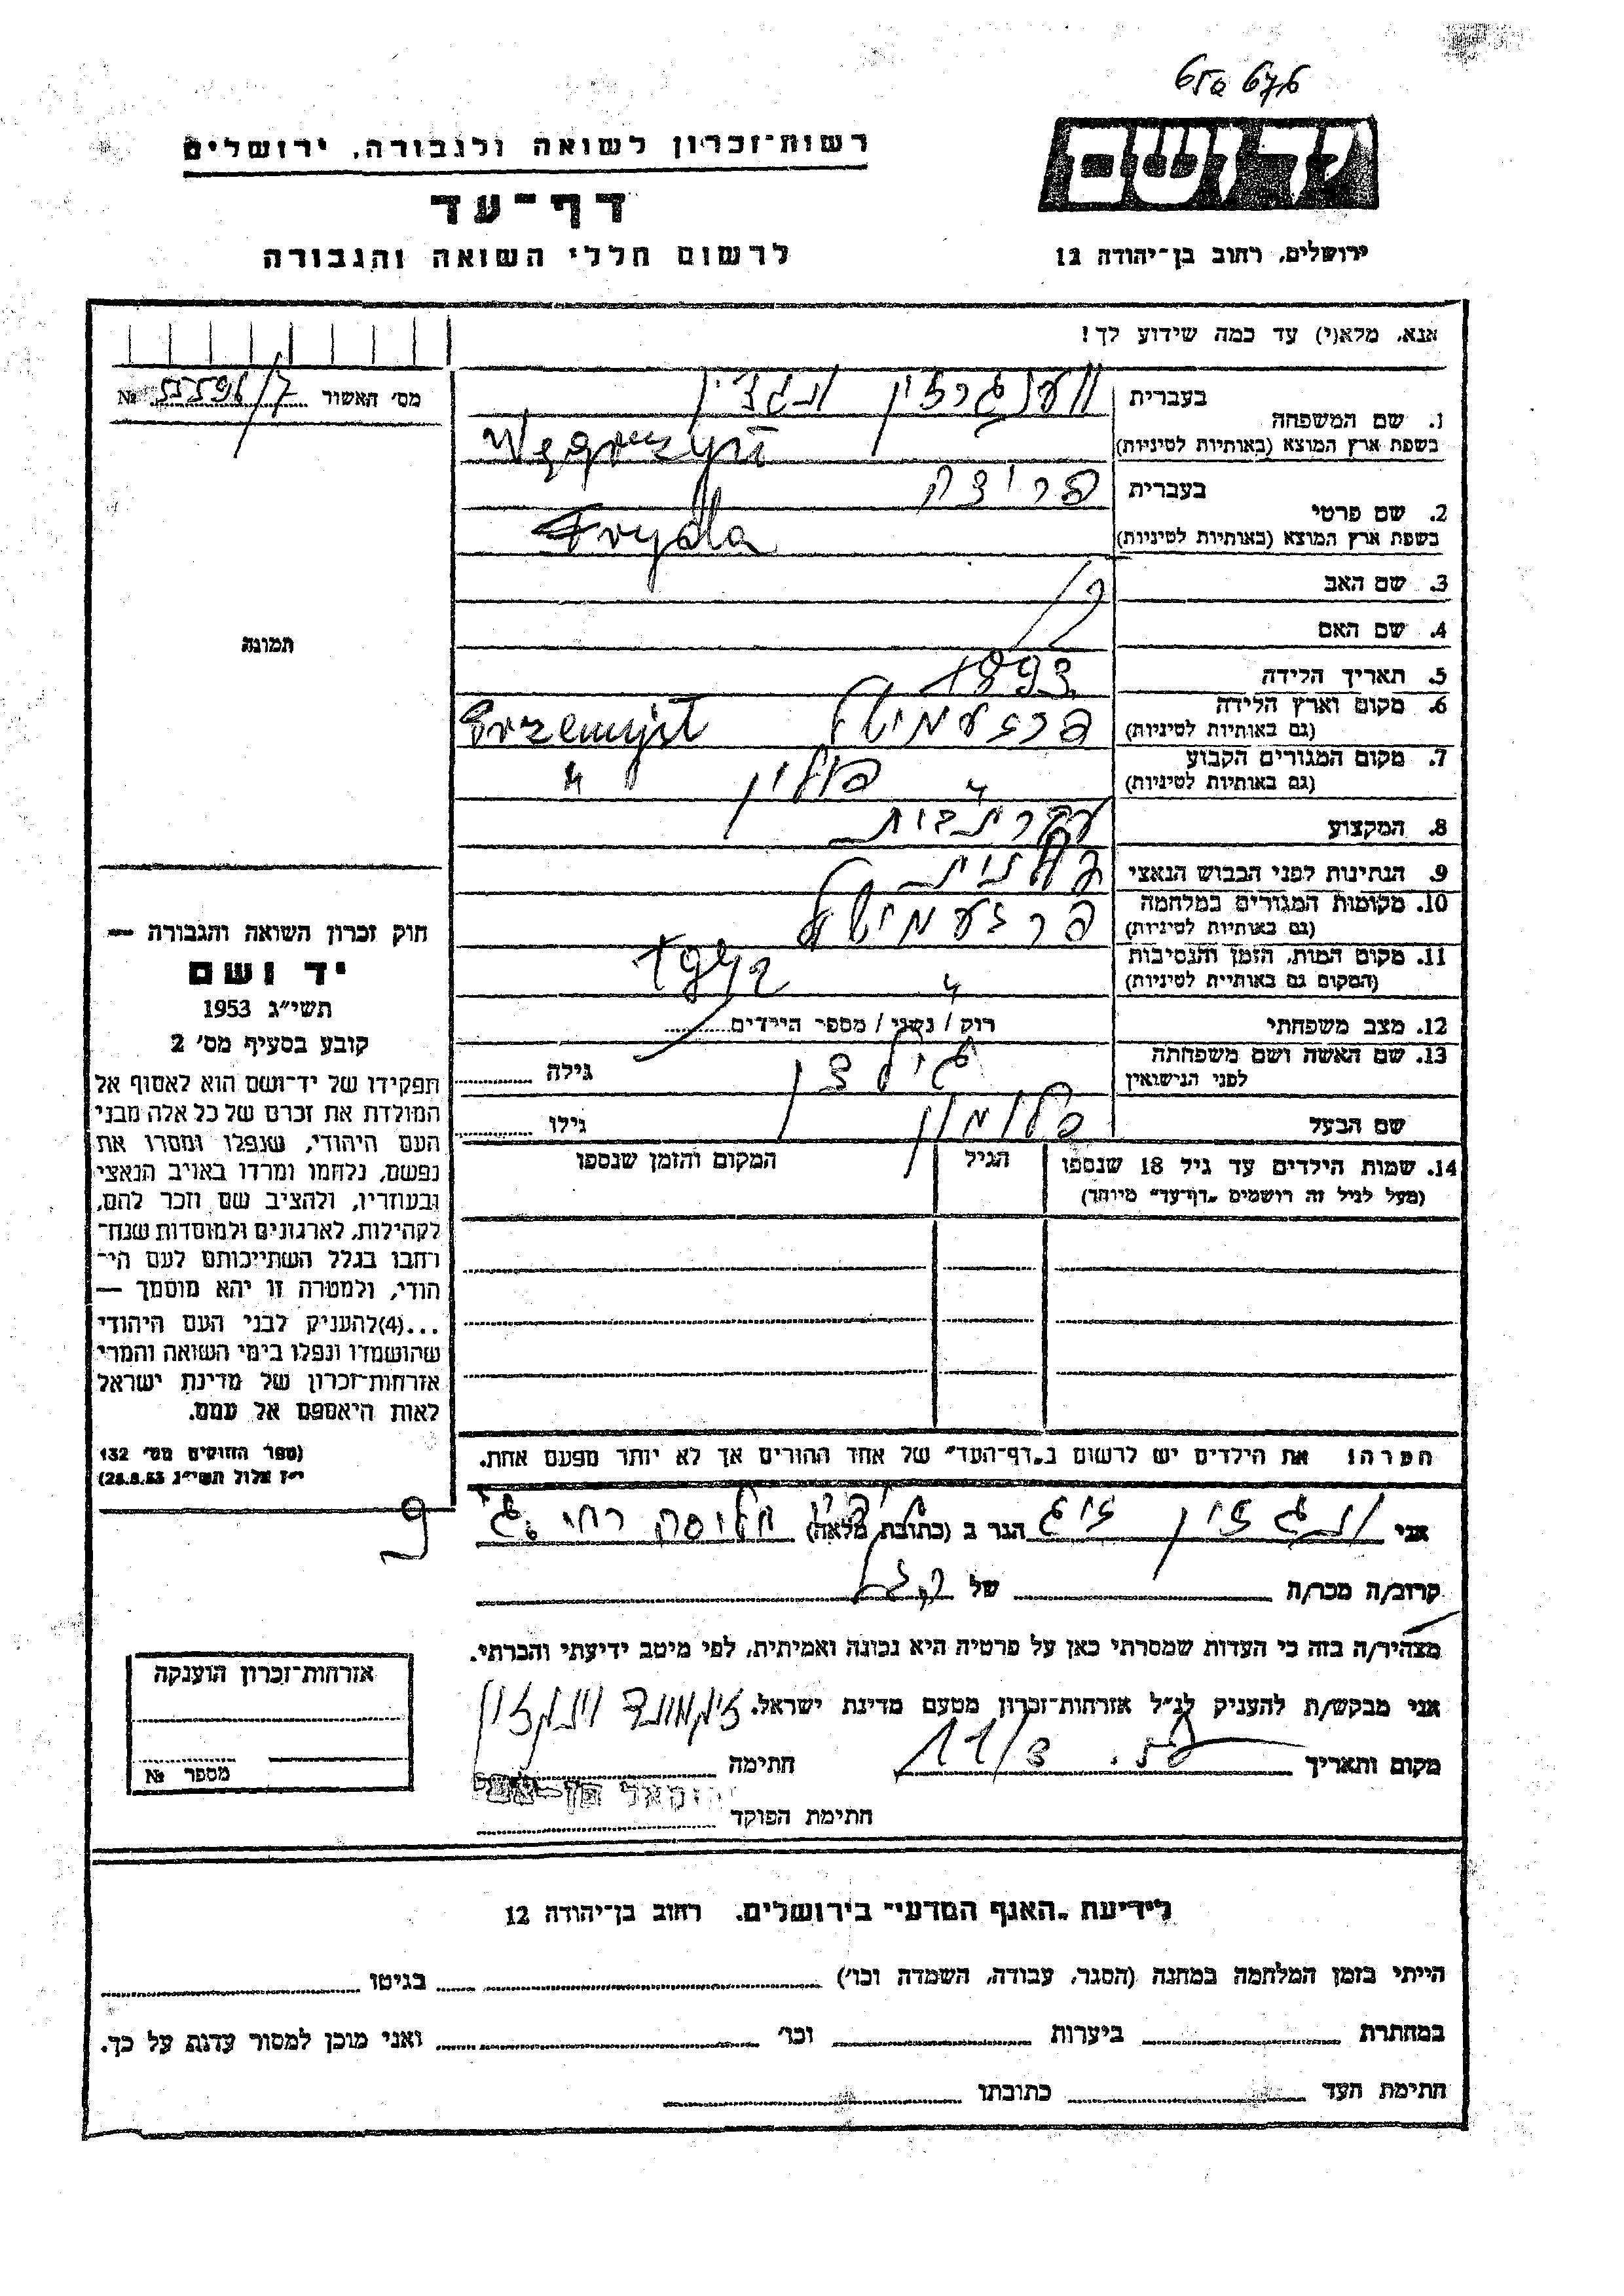 656 676
רשות־זכרון לשואה ולגבורה, ירושלים
יד ושם
דף־עד
לרשום חללי השואה והגבורה
ירושלים, רחוב בן־יהודה 12
אנא, מלא(י) עד כמה שידוע לך!
מס' האשור 55596/7 №
1. שם המשפחה
בעברית
בשפת ארץ המוצא (באותיות לטיניות) Węgrzyn
2. שם פרטי
בעברית פרידה
בשפת ארץ המוצא (באותיות לטיניות) Fryda
3. שם האב
4. שם האם
5. תאריך הלידה 1893
6. מקום וארץ הלידה פרזעמישל
(גם באותיות לטיניות)
7. מקום המגורים הקבוע " פולין "
(גם באותיות לטיניות)
8. המקצוע עקרת בית
9. הנתינות לפני הכבוש הנאצי פולנית
10. מקומות המגורים במלחמה פרזעמישל
(גם באותיות לטיניות)
11. מקום המות, הזמן והנסיבות " 1942
(המקום גם באותיות לטיניות)
12. מצב משפחתי רוק / נשוי / מספר הילדים
13. שם האשה ושם משפחתה גילה
לפני הנישואין
שם הבעל גילו
14. שמות הילדים עד גיל 18 שנספו הגיל המקום והזמן שנספו
(מעל לגיל זה רושמים „דף־עד" מיוחד)
תמונה
חוק זכרון השואה והגבורה —
יד ושם
תשי"ג 1953
קובע בסעיף מס' 2
תפקידו של יד־ושם הוא לאסוף אל
המולדת את זכרם של כל אלה מבני
העם היהודי, שנפלו ומסרו את
נפשם, נלחמו ומרדו באויב הנאצי
ובעוזריו, ולהציב שם וזכר להם,
לקהילות, לארגונים ולמוסדות שנח־
רבו בגלל השתייכותם לעם הי־
הודי, ולמטרה זו יהא מוסמך —
...(4)להעניק לבני העם היהודי
שהושמדו ונפלו בימי השואה והמרי
אזרחות־זכרון של מדינת ישראל
לאות היאספם אל עמם.
(ספר החוקים מס' 132
י"ז אלול תשי"ג 28.8.53)
הערה! את הילדים יש לרשום ב„דף־העד" של אחד ההורים אך לא יותר מפעם אחת.
אני הגר ב (כתובת מלאה)
קרוב/ה מכר/ה של
מצהיר/ה בזה כי העדות שמסרתי כאן על פרטיה היא נכונה ואמיתית, לפי מיטב ידיעתי והכרתי.
אני מבקש/ת להעניק לנ"ל אזרחות־זכרון מטעם מדינת ישראל.
מקום ותאריך חתימה
חתימת הפוקד
אזרחות־זכרון הוענקה
מספר №
לידיעת „האגף המדעי" בירושלים. רחוב בן־יהודה 12
הייתי בזמן המלחמה במחנה (הסגר, עבודה, השמדה וכו') בגיטו
במחתרת ביערות וכו' ואני מוכן למסור עדות על כך.
חתימת העד כתובתו